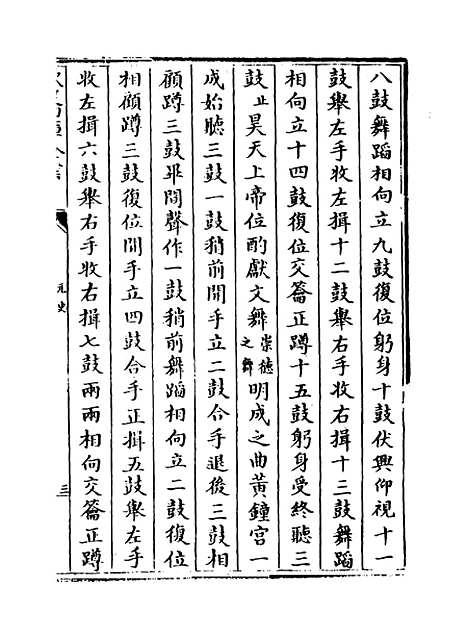 八鼓舞蹈相向立九鼓復位躬身十鼓伏興仰視十一
鼓舉左手收左揖十二鼓舉右手收右揖十三鼓舞蹈
相向立十四鼓復位交籥正蹲十五鼓躬身受終聽三
鼓止昊天上帝位酌獻文舞崇德之舞明成之曲黄鐘宫一
成始聽三鼓一鼓稍前開手立二鼓合手退後三鼓相
顧蹲三鼓畢間聲作一鼓稍前舞蹈相向立二鼓復位
相顧蹲三鼓復位開手立四鼓合手正揖五鼓舉左手
收左揖六鼓舉右手收右揖七鼓兩兩相向交籥正蹲
元史
三